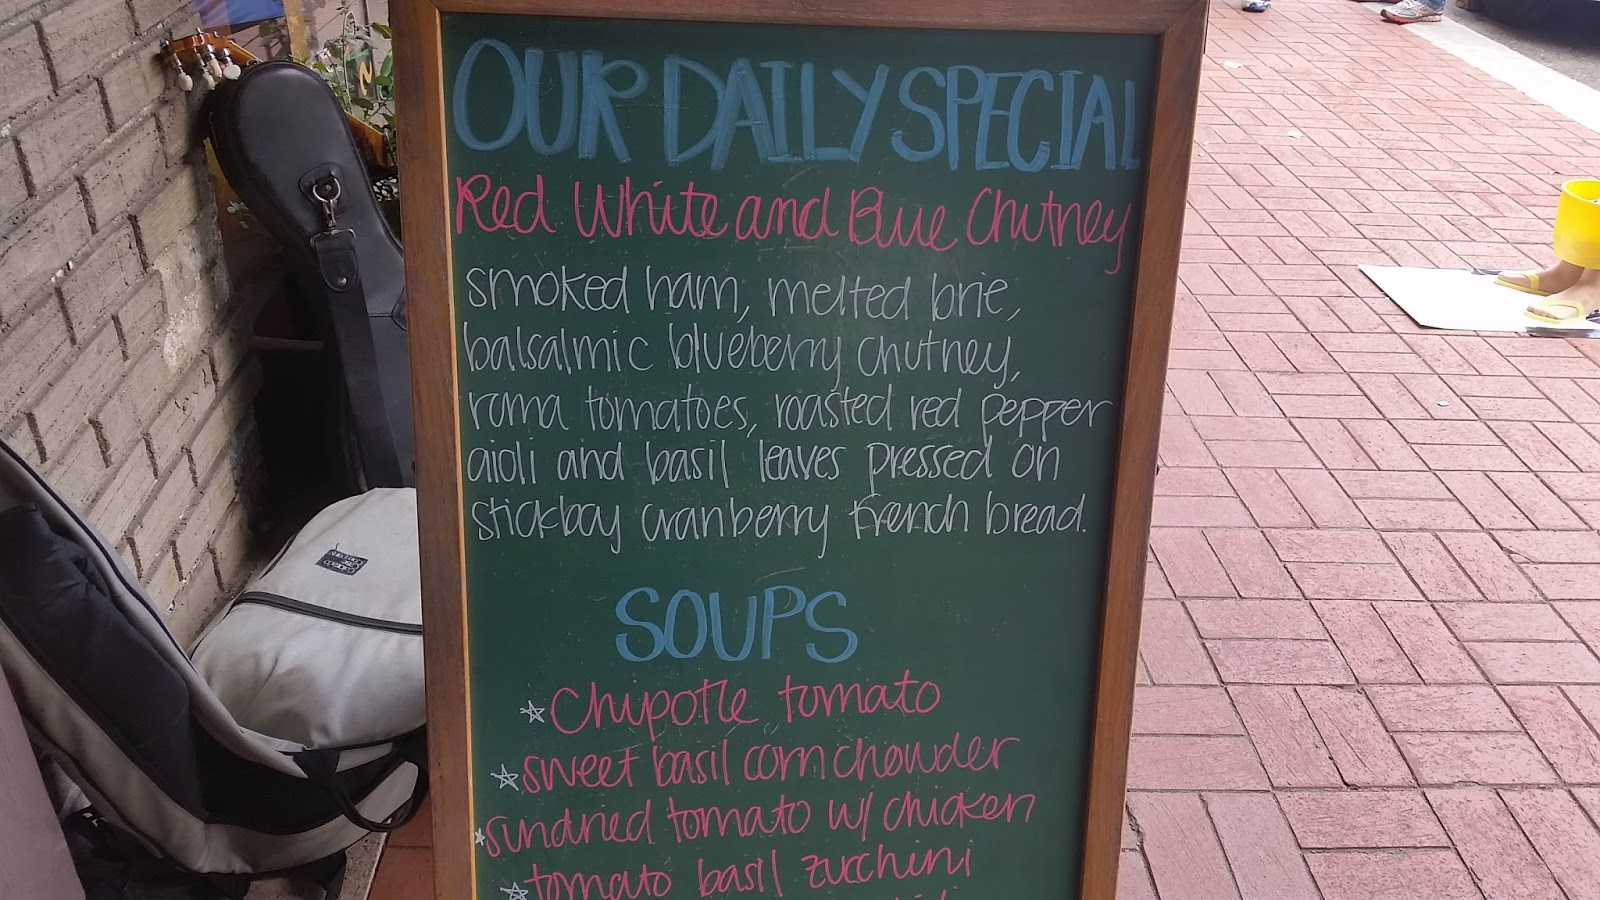 OUR DAILY SPECIAL
Red White and Blue Chutney
smoked ham, melted brie,
balsalmic blueberry chutney,
roma tomatoes, roasted red pepper
aioli and basil leaves pressed on
stickboy cranberry French bread.
SOUPS
Chipotle tomato
sweet basil corn chowder
sundried tomato w/ chicken
tomato basil zucchini